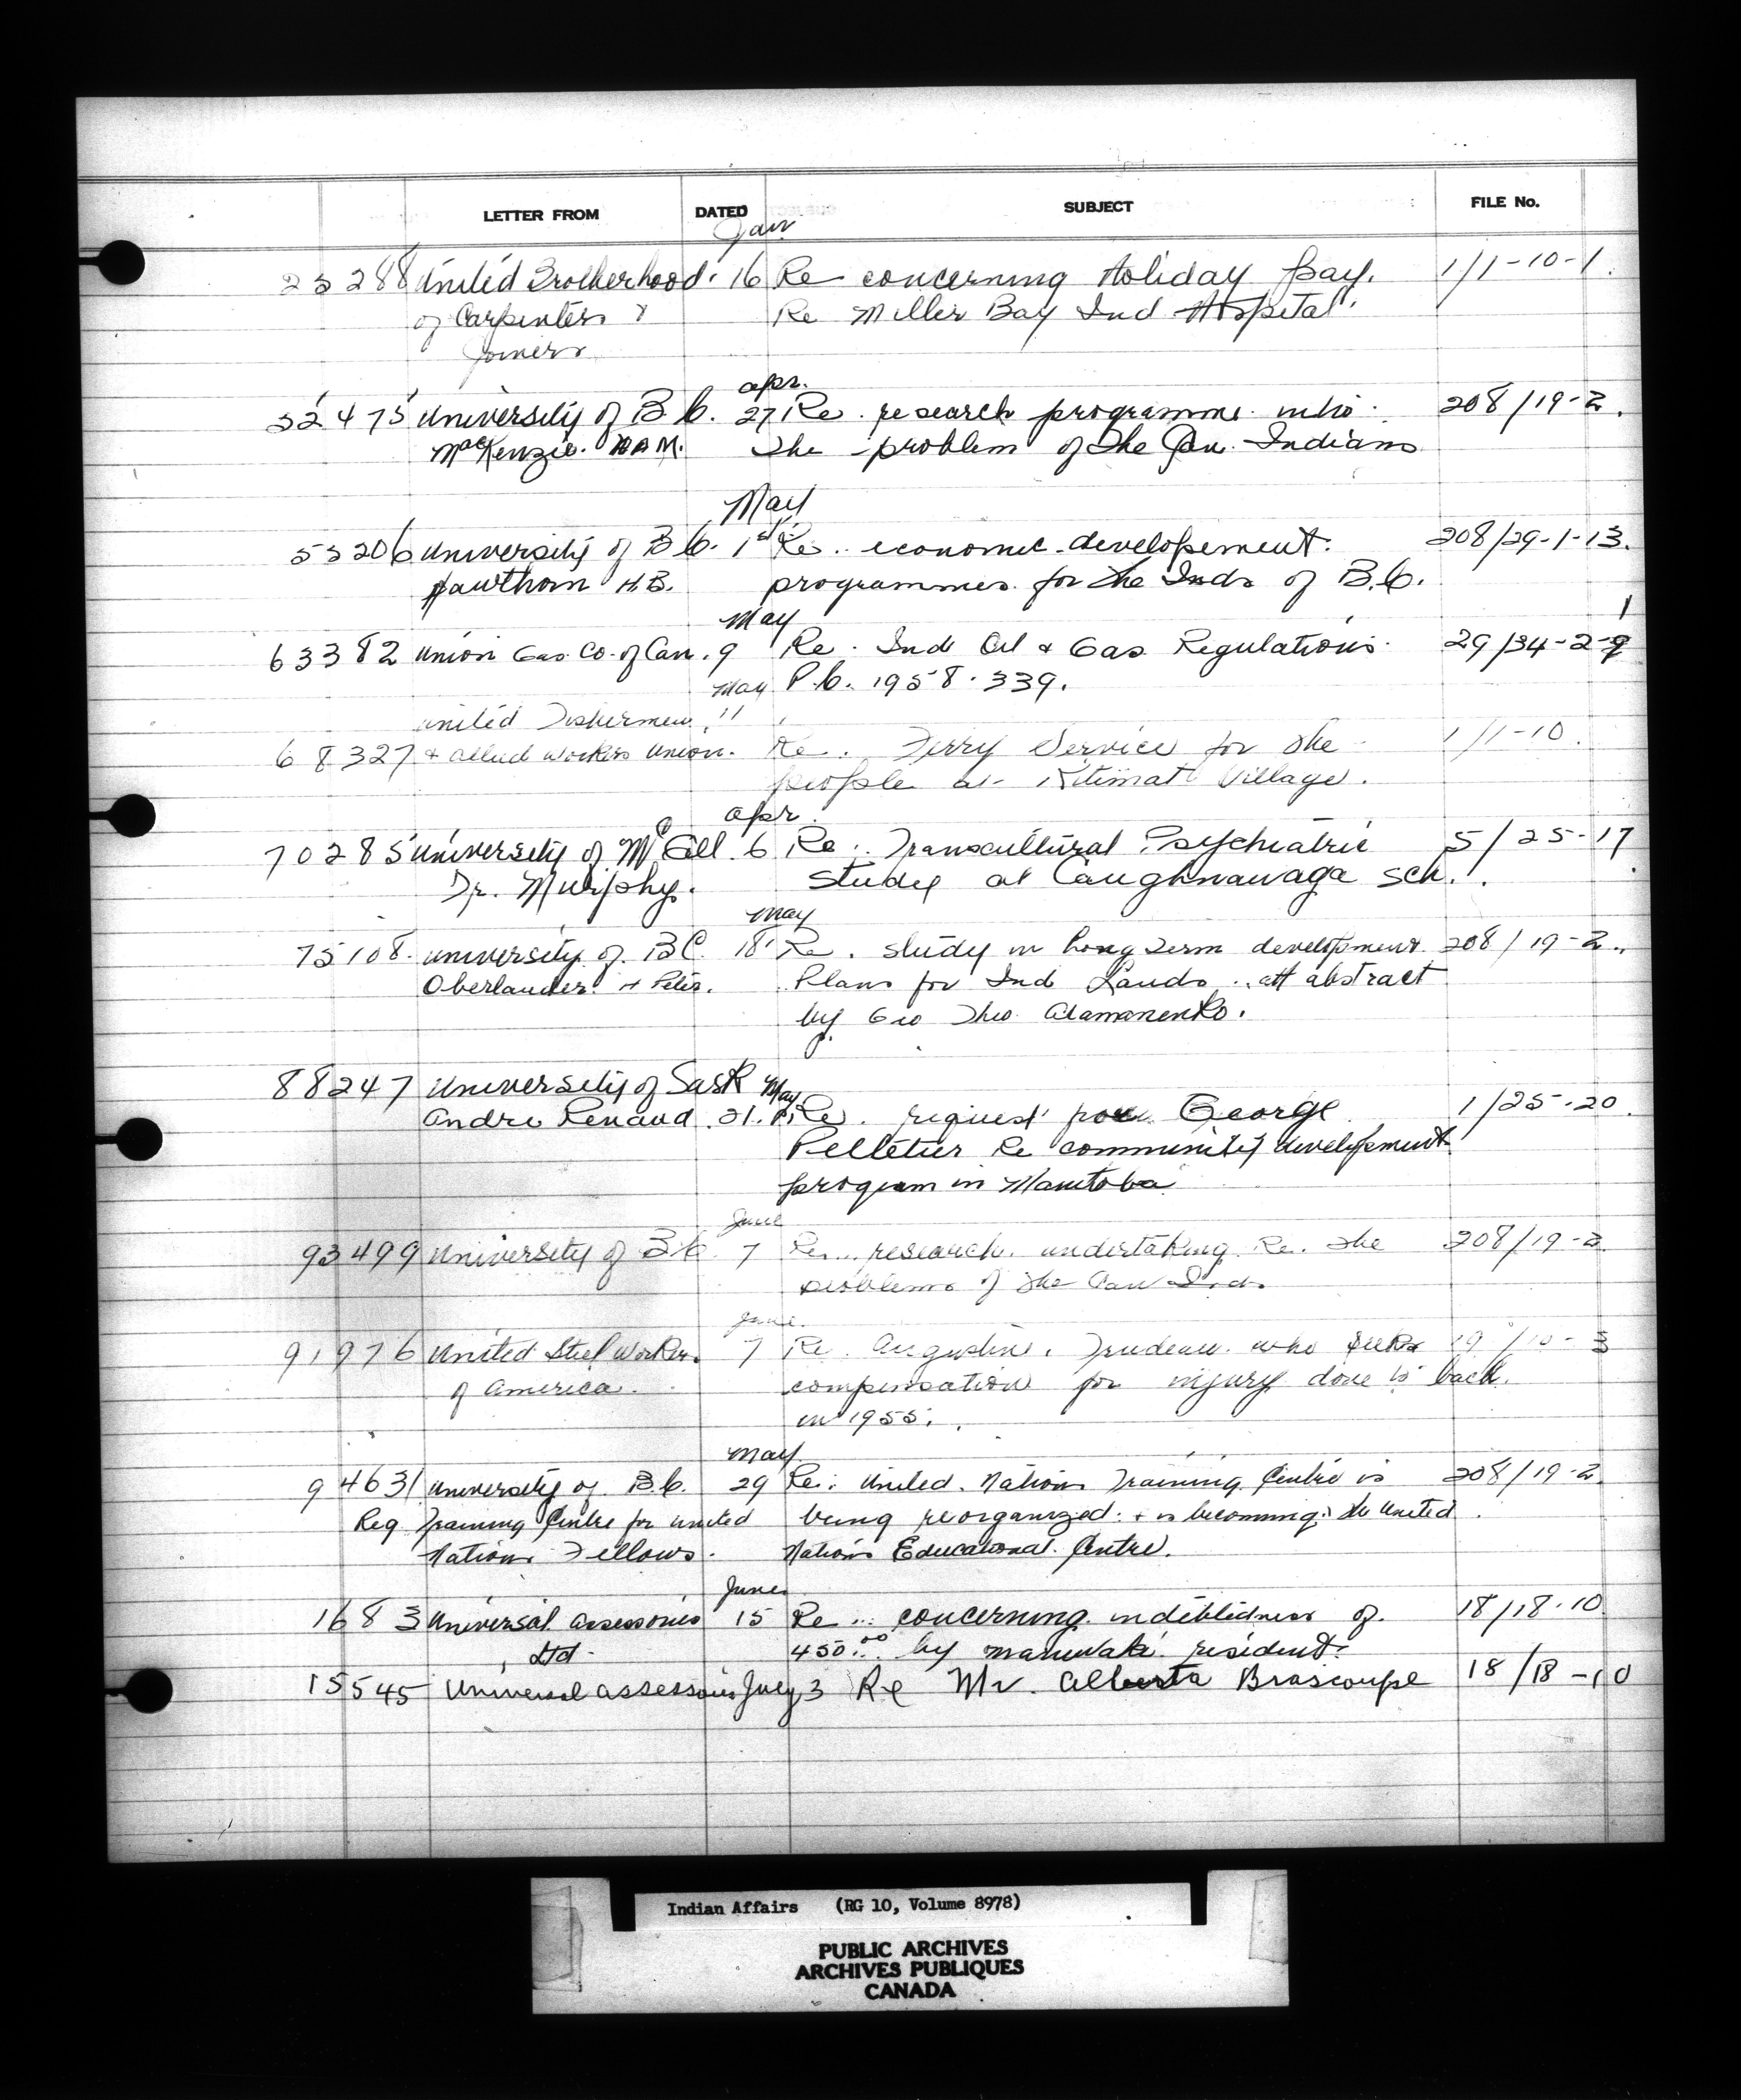 LETTER FROM DATED SUBJECT FILE No.
Jan
23288 United Brotherhood 16 Re concerning Holiday pay. 1/1-10-1.
of Carpenters & Re Miller Bay Ind Hospital.
Joiners
Apr.
52475 University of B.C. 27 Re. research programme into 208/19-2.
MacKenzie. the problem of the Can. Indians
May
55206 University of B.C. 1st Re.. economic developement. 208/29-1-13.
Hawthorn H.B. programmes for the Inds of B.C.
May 1
63382 Union Gas Co. of Can. 9 Re. Ind Oil & Gas Regulations. 29/34-2-
May P.C. 1958.339.
United Fishermen 11
68327 & Allied Workers Union. Re. Ferry Service for the 1/1-10.
people at Kitimat Village.
Apr.
70285 University of McGill 6 Re.. Transcultural Psychiatric 5/25-17
Dr. Murphy. study at Caughnawaga Sch.
May
75108. University of B.C. 18 Re. study in long term development 208/19-2.
Oberlander. H Peter. Plans for Ind Lands.. att abstract
by Geo Theo Atamanenko.
88247 University of Sask May
Andre Renaud 31. Re. request for George 1/25-20.
Pelletier Re community development
program in Manitoba
June
93499 University of B.C. 7 Re... research undertaking Re. the 208/19-2
problems of the Can Inds.
June.
91976 United Steel Workers 7 Re. Augustine Trudeau who seeks 19/10-3
of America. compensation for injury done to back.
in 1955.
May
94631 University of B.C. 29 Re: United Nations Training Centre is 208/19-2
Reg Training Centre for United being reorganized: & is becoming the United
Nations Fellows. Nations Educational Centre.
June
1683 Universal Assessories 15 Re... concerning indebtedness of 18/18-10
Ltd. 450.00 by Maniwaki resident.
15545 Universal Assessories July 3 Re Mr. Alberta Brascoupe 18/18-10
Indian Affairs (RG 10, Volume 8978)
PUBLIC ARCHIVES
ARCHIVES PUBLIQUES
CANADA